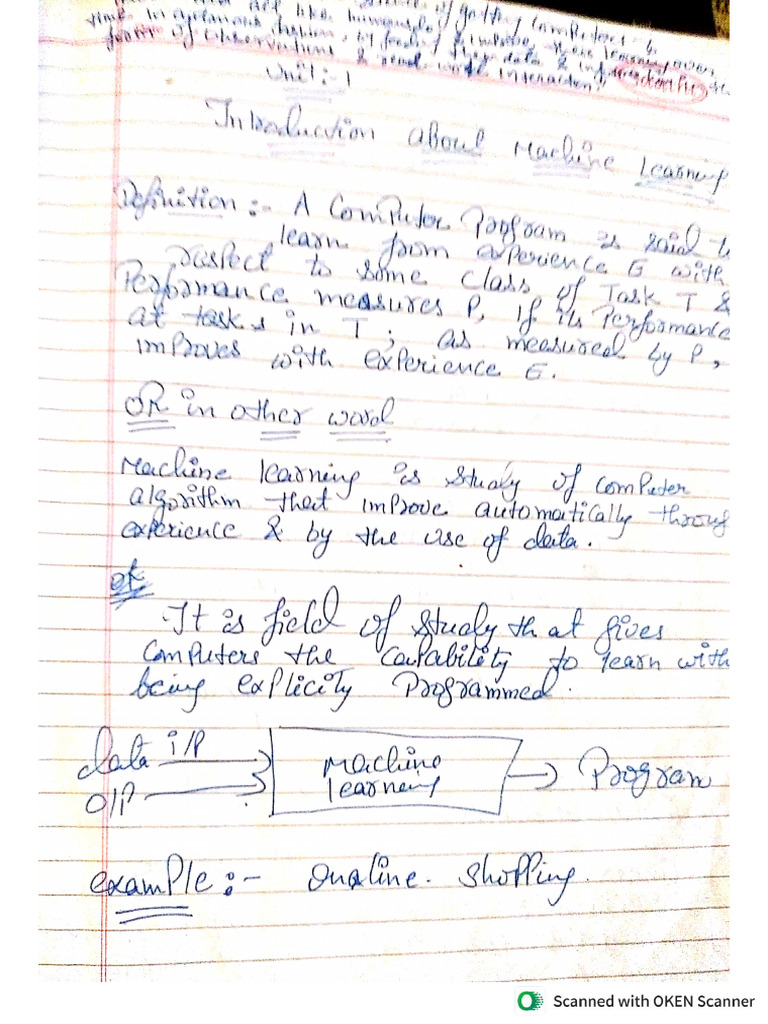 of getting Computers to
like humans & improve their learning over
time in autonomous fashion, by feeding them data & information in the
form of observations & real world interaction"
Unit:-1
Introduction about Machine Learning
Definition :- A Computer Program is said to
learn from experience E with
respect to some class of Task T &
Performance measures P, If its Performance
at tasks in T, as measured by P,
improves with experience E.
OR in other word
Machine learning is study of computer
algorithm that improve automatically throug
experience & by the use of data.
or
It is field of study that gives
Computers the capability to learn with
being explicity Programmed.
data i/P
O/P
Machine
learning
Program
example :- Onaline. Shopping.
Scanned with OKEN Scanner